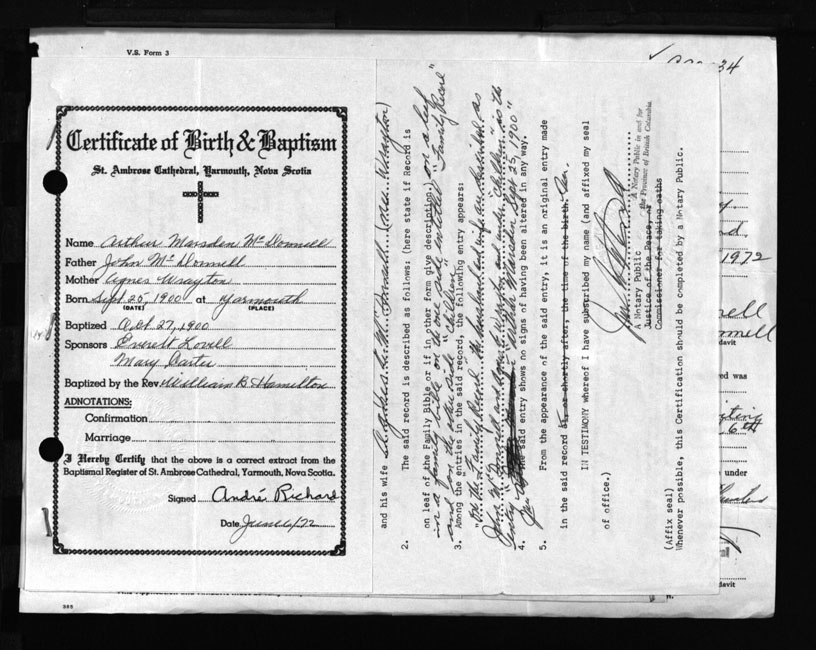 V.S. Form 3
Certificate of Birth & Baptism
St. Ambrose Cathedral, Yarmouth, Nova Scotia
Name Arthur Marsden McDonnell
Father John McDonnell
Mother Agnes Wrayton
Born Sept 25, 1900 at Yarmouth
(DATE) (PLACE)
Baptized Oct 27, 1900
Sponsors Everett Lovell
Mary Carter
Baptized by the Rev. William B. Hamilton
ADNOTATIONS:
Confirmation
Marriage
I Hereby Certify that the above is a correct extract from the
Baptismal Register of St. Ambrose Cathedral, Yarmouth, Nova Scotia.
Signed André Richard
Date June 6/72
and his wife
2. The said record is described as follows: (here state if Record is
on leaf of the Family Bible or if in other form give description.) on a leaf
in a family bible on the one side entitled "Family Record"
and on the other side "Children"
3. Among the entries in the said record, the following entry appears:
"On the Family Record the husband and wife are described as
John McDonnell and Agnes Wrayton and under "Children" is the
entry Arthur Marsden Sept 25, 1900"
4. The said entry shows no signs of having been altered in any way.
5. From the appearance of the said entry, it is an original entry made
in the said record at, or shortly after, the time of the birth.
IN TESTIMONY whereof I have subscribed my name (and affixed my seal
of office.)
A Notary Public in and for
the Province of British Columbia
A Notary Public
Justice of the Peace, or
Commissioner for taking oaths
(Affix seal)
Whenever possible, this Certification should be completed by a Notary Public.
34
1972
davit
ed was
6th
under
davit